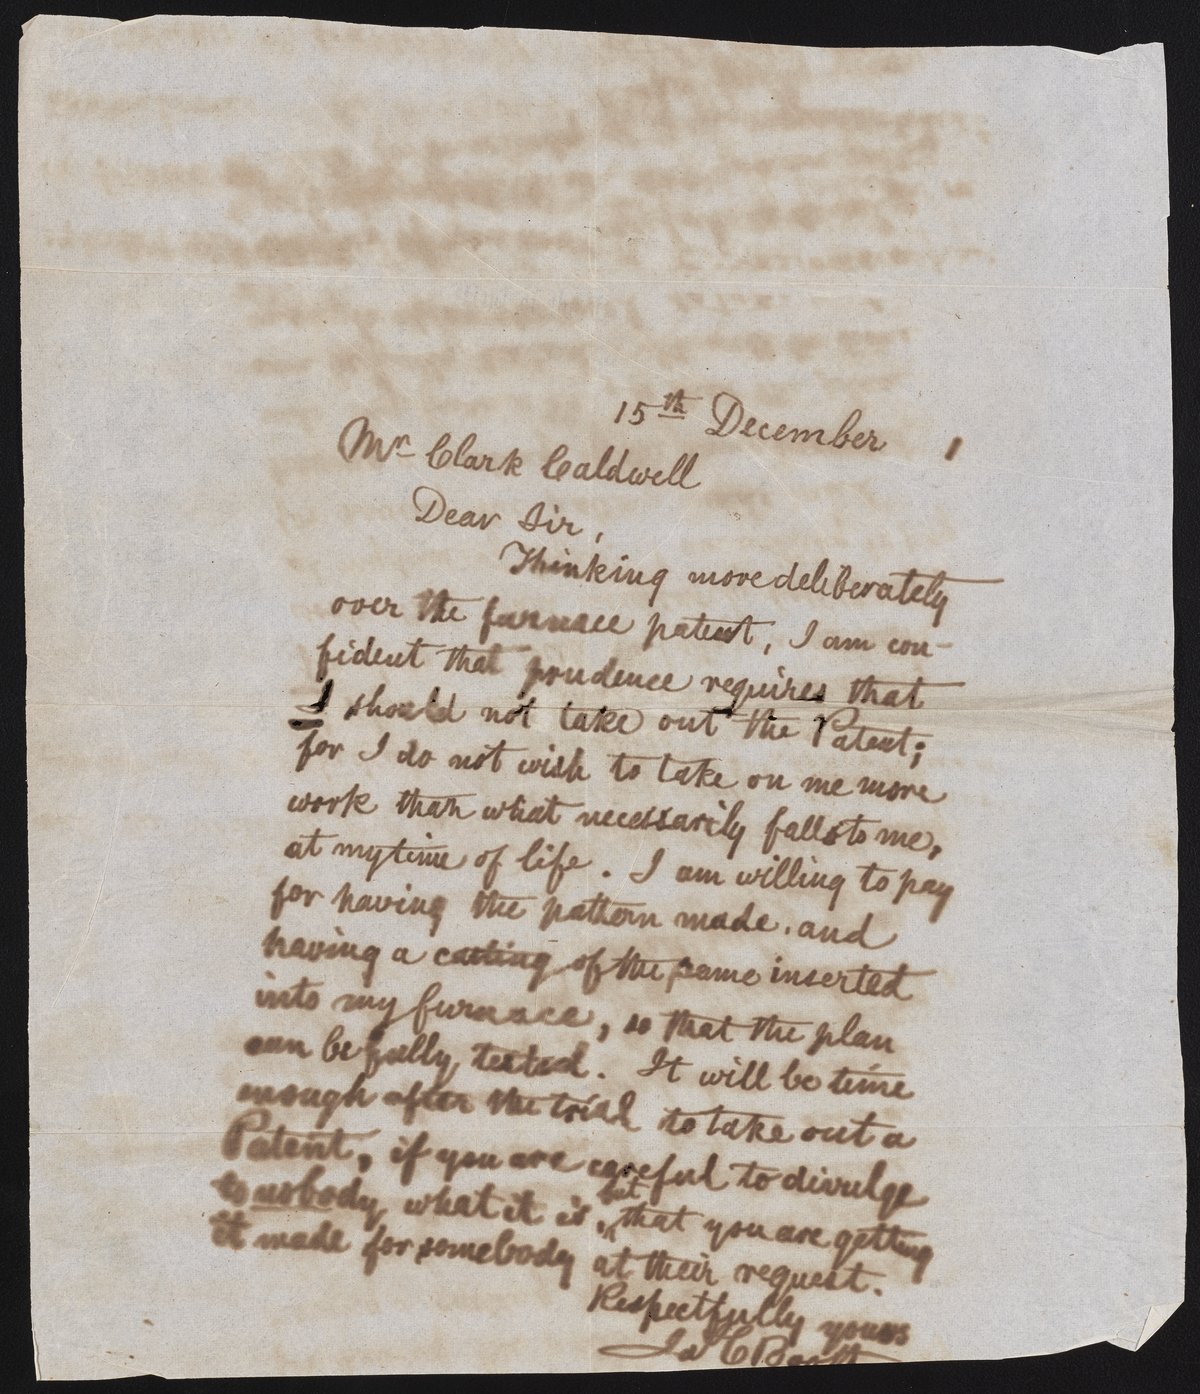 15th December 1
Mr Clark Caldwell
Dear Sir,
Thinking more deliberately
over the furnace patent, I am con-
fident that prudence requires that
I should not take out the Patent;
for I do not wish to take on me more
work than what necessarily falls to me,
at my time of life. I am willing to pay
for having the pattern made. and
having a casting of the same inserted
into my furnace, so that the plan
can be fully tested. It will be time
enough after the trial to take out a
Patent, if you are careful to divulge
to nobody what it is, but that you are getting
it made for somebody at their request.
Respectfully yours
Ja C Booth